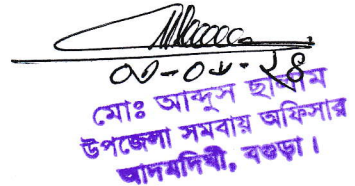 মোঃ আব্দুস ছালাম
উপজেলা সমবায় অফিসার
আদমদিঘী, বগুড়া।